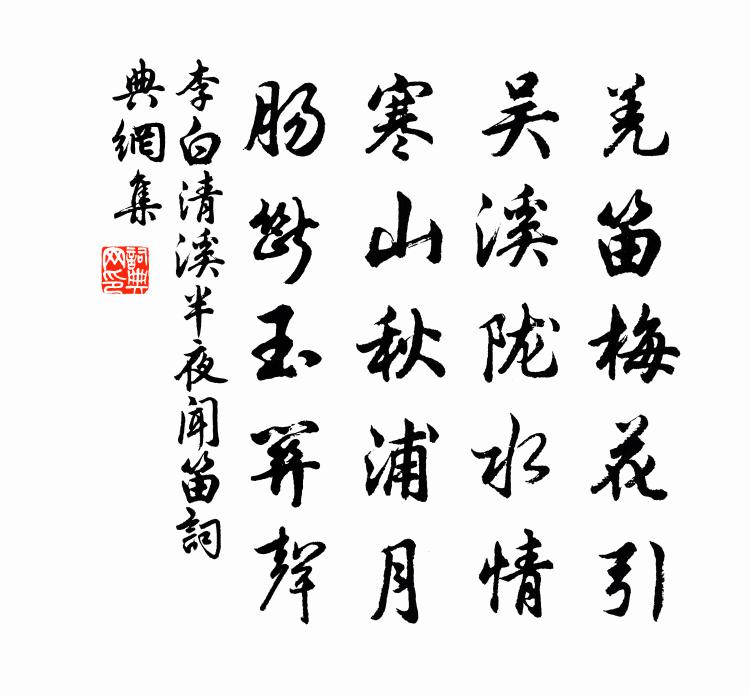 羌笛梅花引
吴溪陇水情
寒山秋浦月
肠断玉关声
李白清溪半夜闻笛詞
典網集
詞典
网印